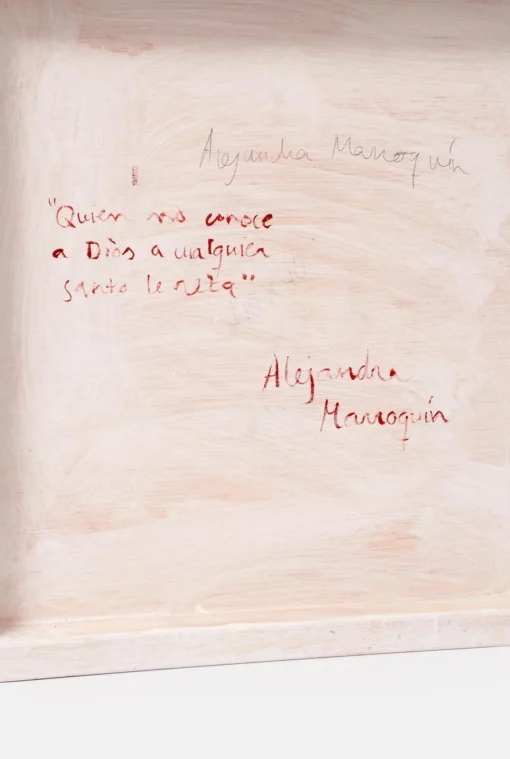 Alejandra Marroquín
"Quien no conoce
a Diós a cualquier
santo le reza"
Alejandra
Marroquín